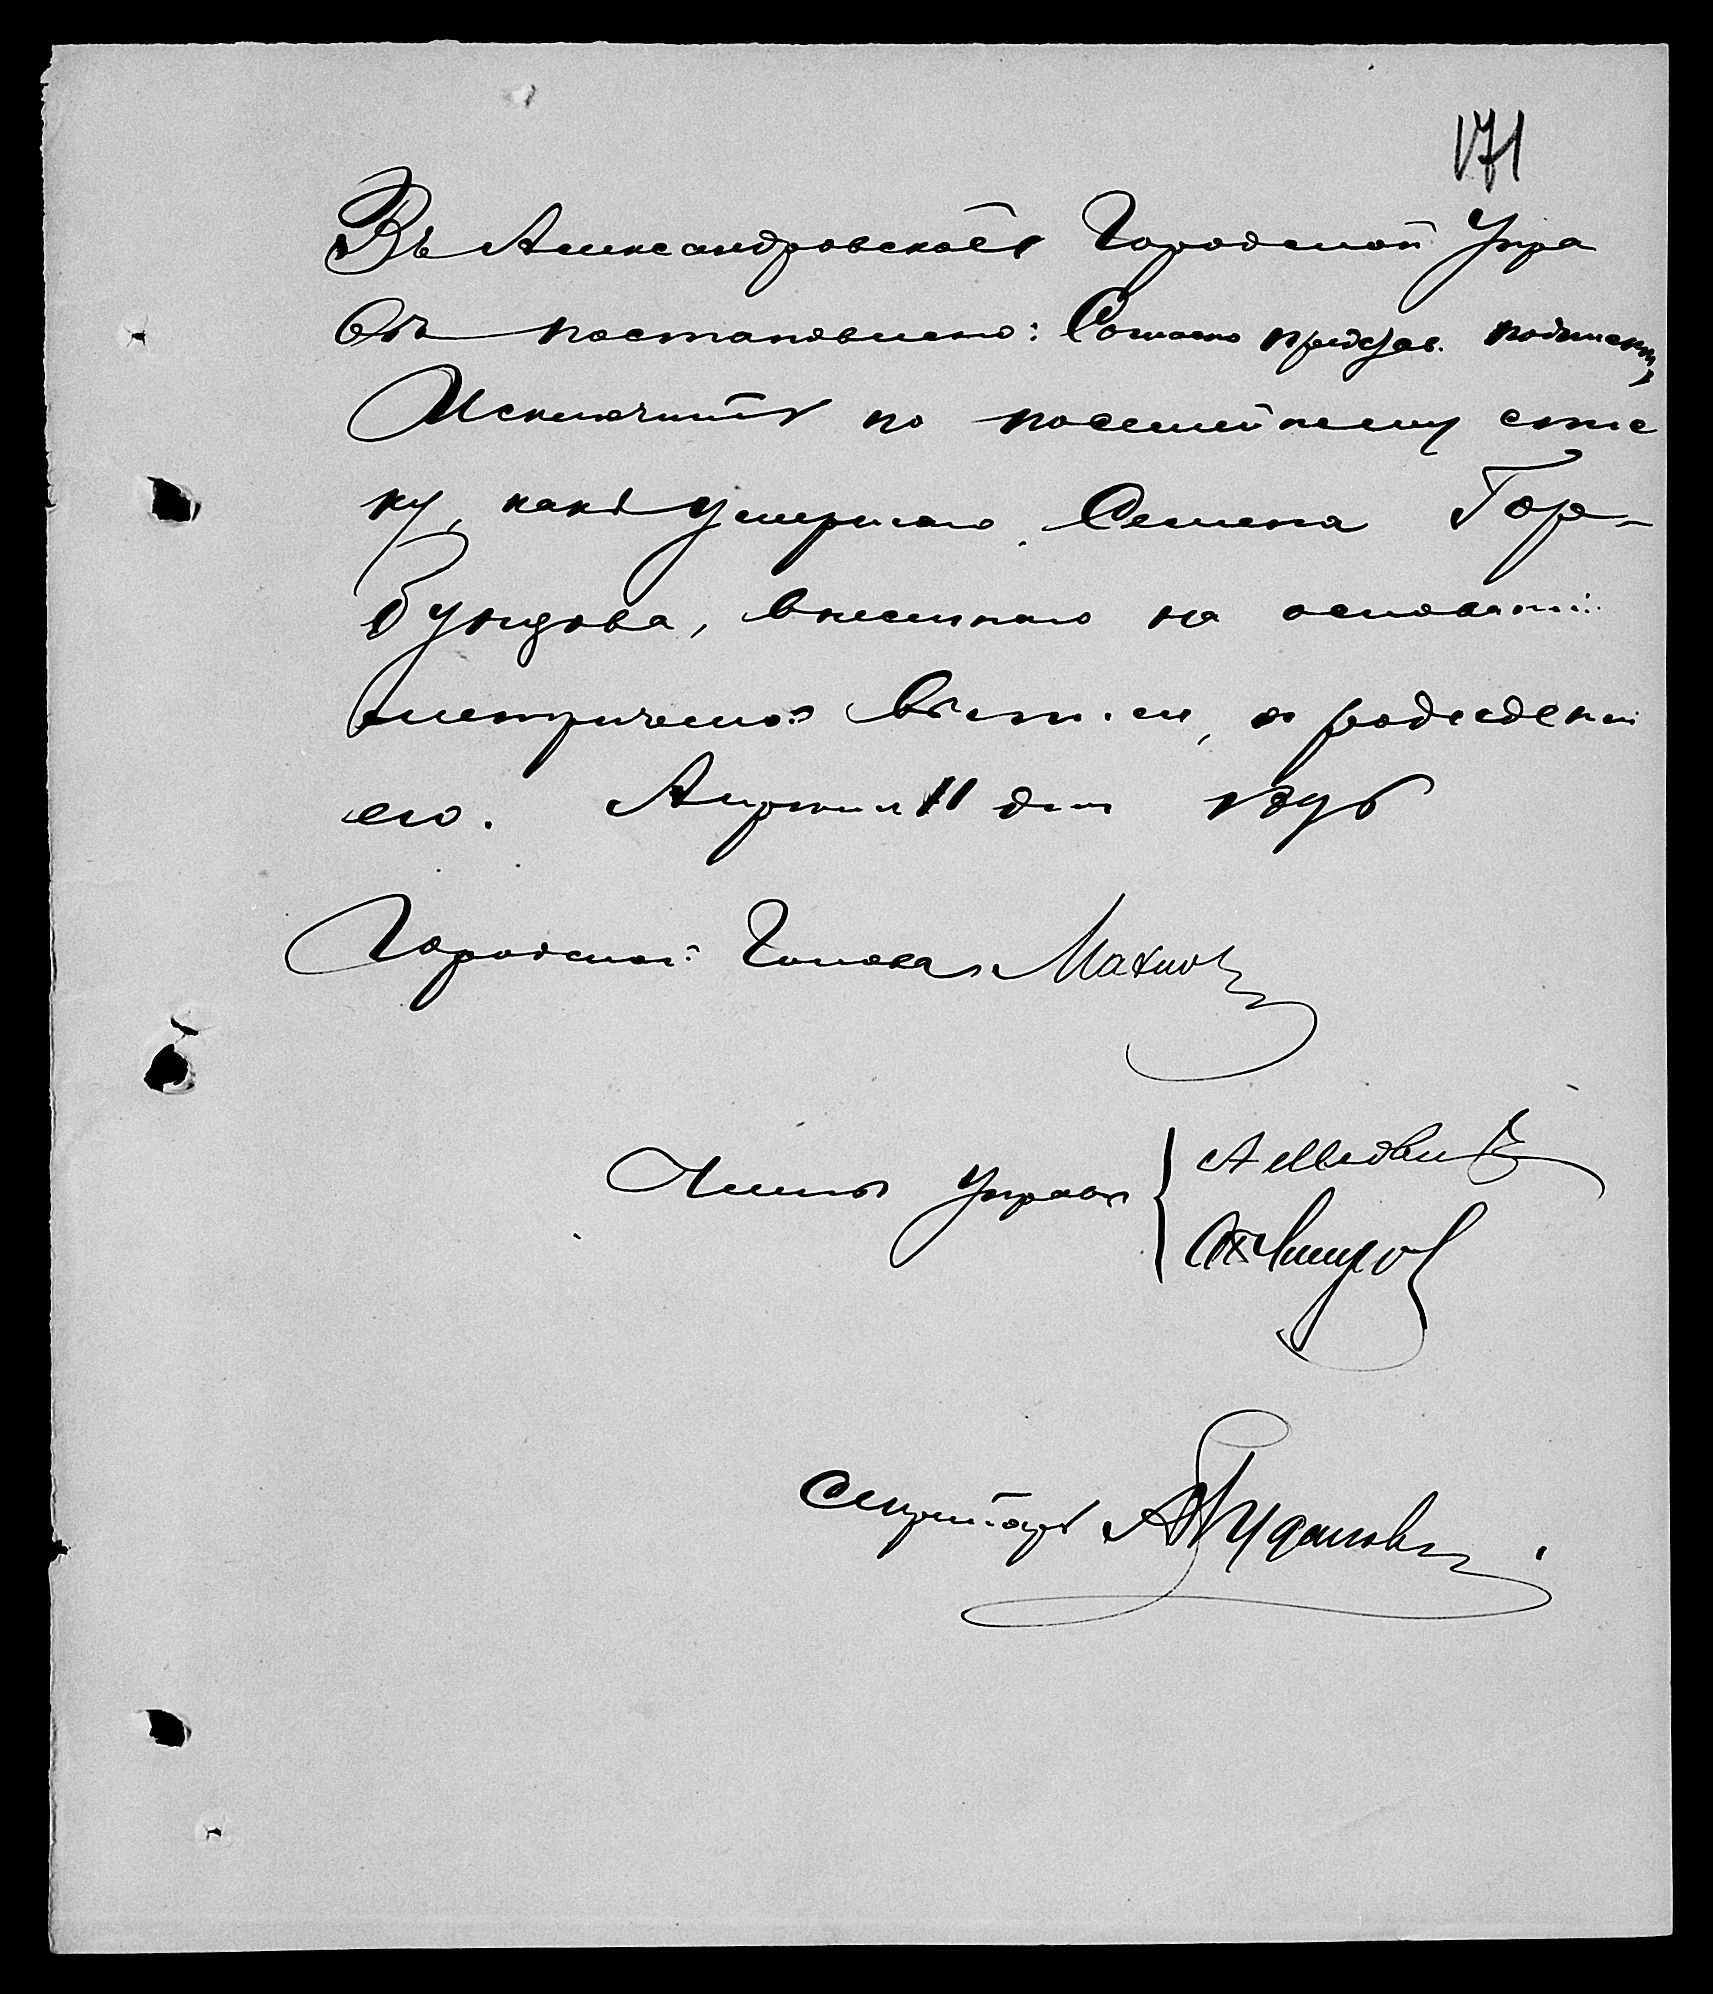 171
Въ Александровской Городской Упра
вѣ постановлено: Согласно представ. подписки,
Исключить по посемейному спис
ку, какъ умершаго, Семена Гор-
бунцова, внесеннаго на основаніи
метрической выписи, о рожденіи
его. Апреля 11 дня 1896
Городской Голова Махно
Члены Управы
Секретарь